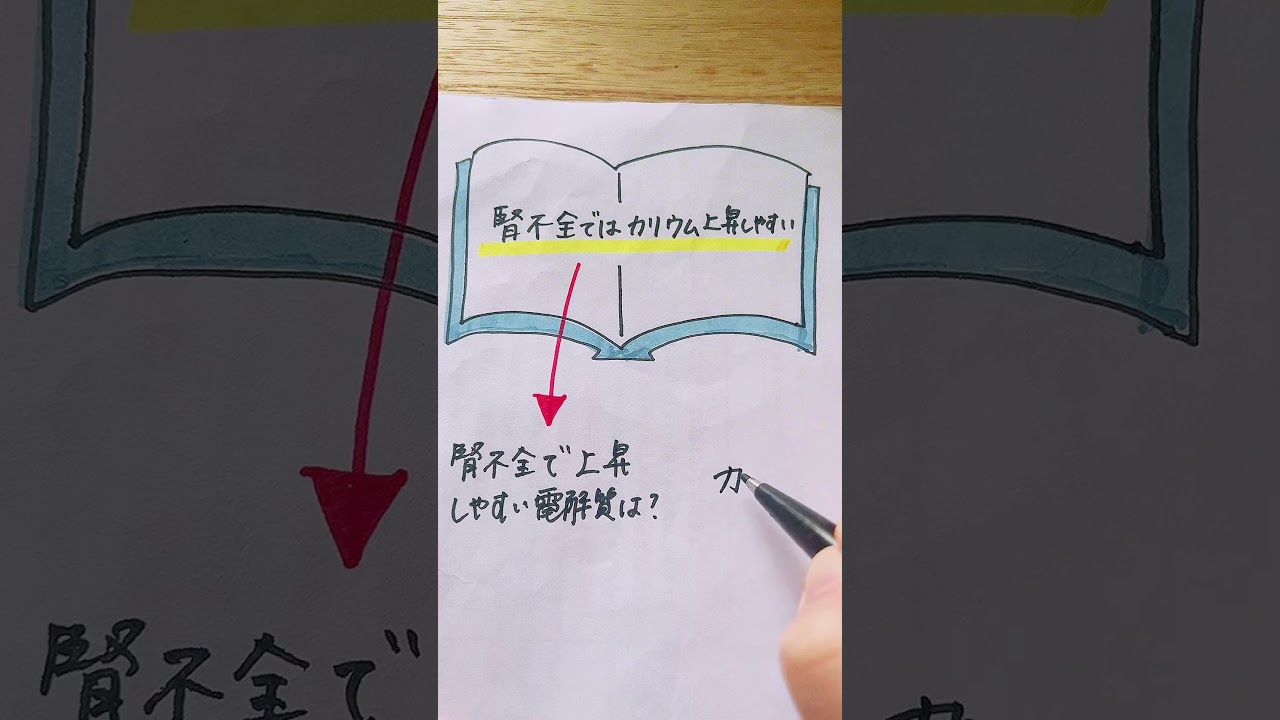 腎不全ではカリウム上昇しやすい
腎不全で上昇
しやすい電解質は?
カ
腎不全で
カ